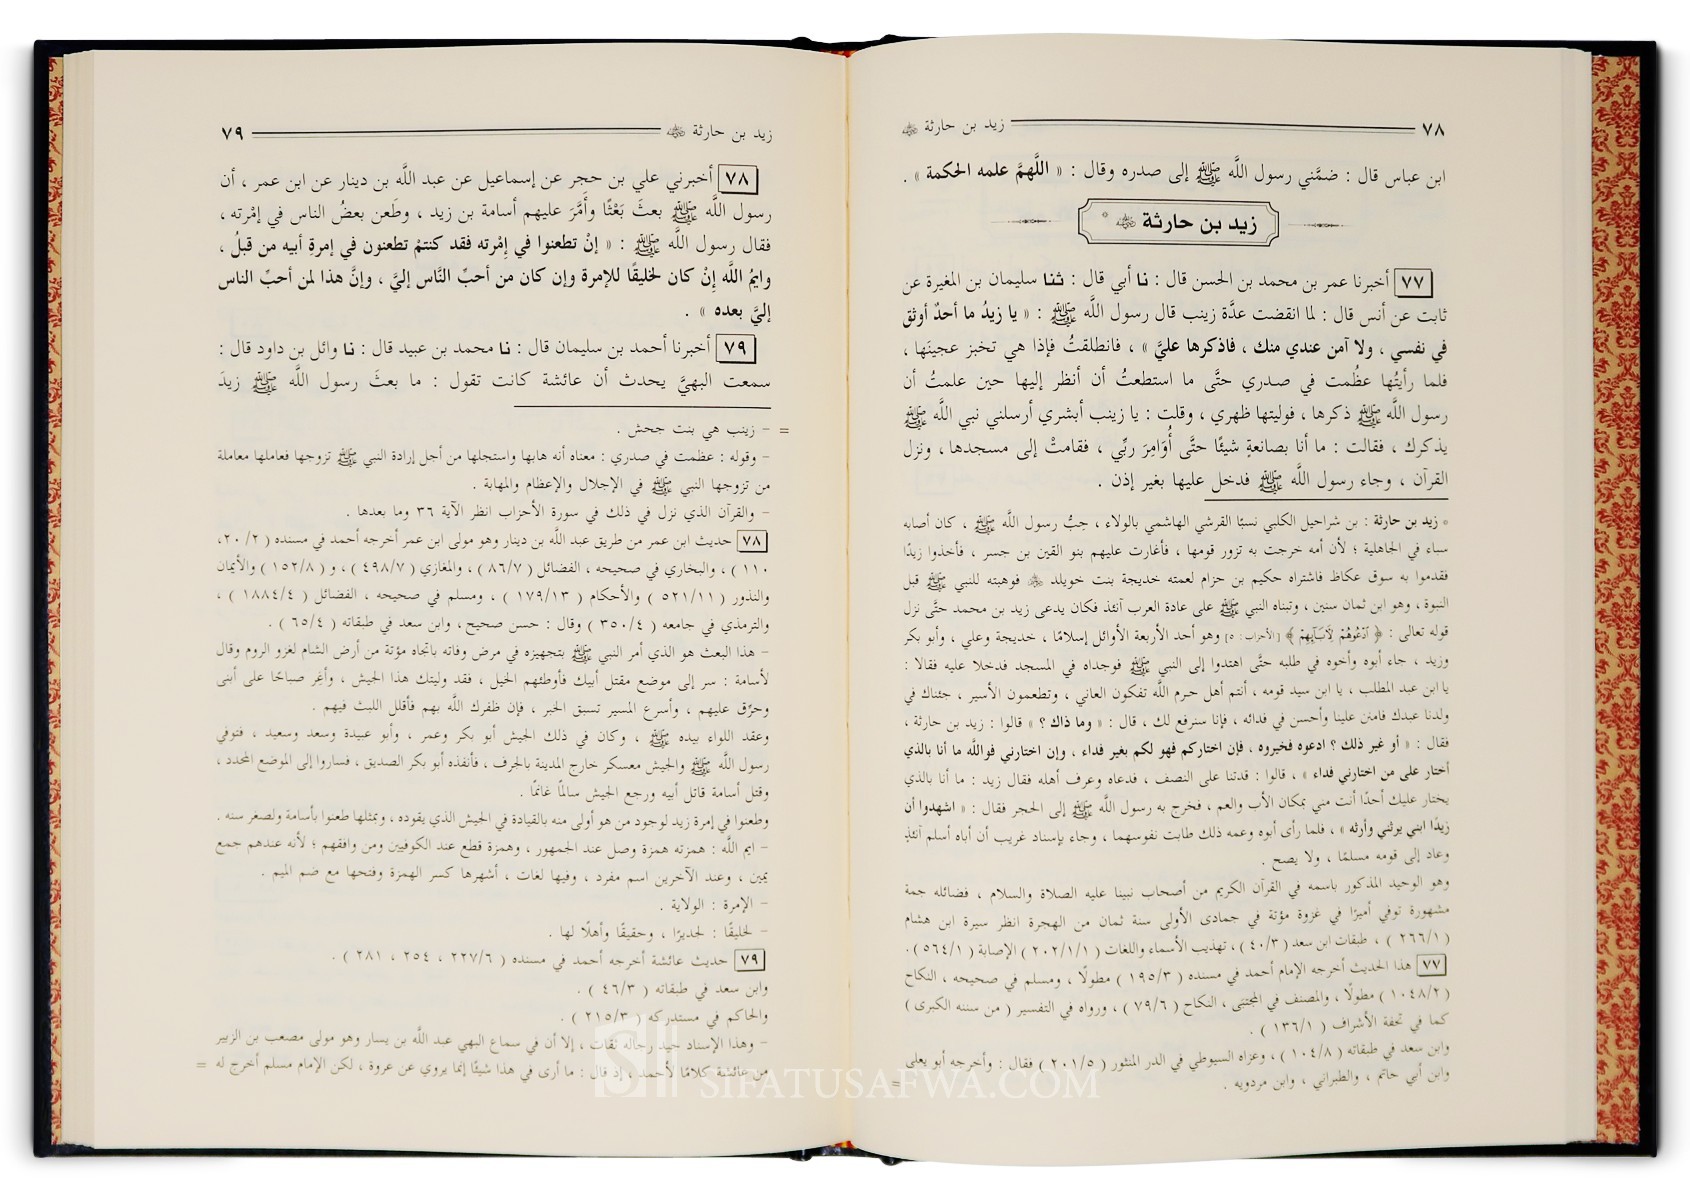 ٧٨ زيد بن حارثة
ابن عباس قال : ضمَّني رسول اللَّه ﷺ إلى صدره وقال : « اللَّهمَّ علمه الحكمة » .
زيد بن حارثة *
٧٧ أخبرنا عمر بن محمد بن الحسن قال : نا أبي قال : ثنا سليمان بن المغيرة عن
ثابت عن أنس قال : لما انقضت عدَّة زينب قال رسول اللَّه ﷺ : « يا زيدُ ما أحدٌ أوثق
في نفسي ، ولا آمن عندي منك ، فاذكرها عليَّ » ، فانطلقتُ فإذا هي تخبز عجينَها ،
فلما رأيتُها عظُمت في صدري حتَّى ما استطعتُ أن أنظر إليها حين علمتُ أن
رسول اللَّه ﷺ ذكرها ، فوليتها ظهري ، وقلت : يا زينب أبشري أرسلني نبي اللَّه ﷺ
يذكرك ، فقالت : ما أنا بصانعةٍ شيئًا حتَّى أُوَامِرَ ربِّي ، فقامتْ إلى مسجدها ، ونزل
القرآن ، وجاء رسول اللَّه ﷺ فدخل عليها بغير إذن .
* زيد بن حارثة : بن شراحيل الكلبي نسبًا القرشي الهاشمي بالولاء ، حِبُّ رسول اللَّه ﷺ ، كان أصابه
سباء في الجاهلية ؛ لأن أمه خرجت به تزور قومها ، فأغارت عليهم بنو القين بن جسر ، فأخذوا زيدًا
فقدموا به سوق عكاظ فاشتراه حكيم بن حزام لعمته خديجة بنت خويلد فوهبته للنبي ﷺ قبل
النبوة ، وهو ابن ثمان سنين ، وتبناه النبي ﷺ على عادة العرب آنئذ فكان يدعى زيد بن محمد حتَّى نزل
قوله تعالى : ﴿ ٱدۡعُوهُمۡ لِأٓبَآئِهِمۡ ﴾ [الأحزاب: ٥] وهو أحد الأربعة الأوائل إسلامًا ، خديجة وعلي ، وأبو بكر
وزيد ، جاء أبوه وأخوه في طلبه حتَّى اهتدوا إلى النبي ﷺ فوجداه في المسجد فدخلا عليه فقالا :
يا ابن عبد المطلب ، يا ابن سيد قومه ، أنتم أهل حرم اللَّه تفكون العاني ، وتطعمون الأسير ، جئناك في
ولدنا عبدك فامنن علينا وأحسن في فدائه ، فإنا سنرفع لك ، قال : « وما ذاك ؟ » قالوا : زيد بن حارثة ،
فقال : « أو غير ذلك ؟ ادعوه فخيروه ، فإن اختاركم فهو لكم بغير فداء ، وإن اختارني فواللَّه ما أنا بالذي
أختار على من اختارني فداء » ، قالوا : قدتنا على النصف ، فدعاه وعرف أهله فقال زيد : ما أنا بالذي
يختار عليك أحدًا أنت مني بمكان الأب والعم ، فخرج به رسول اللَّه ﷺ إلى الحجر فقال : « اشهدوا أن
زيدًا ابني يرثني وأرثه » ، فلما رأى أبوه وعمه ذلك طابت نفوسهما ، وجاء بإسناد غريب أن أباه أسلم آنئذٍ
وعاد إلى قومه مسلمًا ، ولا يصح .
وهو الوحيد المذكور باسمه في القرآن الكريم من أصحاب نبينا عليه الصلاة والسلام ، فضائله جمة
مشهورة توفي أميرًا في غزوة مؤتة في جمادى الأولى سنة ثمان من الهجرة انظر سيرة ابن هشام
( ٢٦٦/١ ) ، طبقات ابن سعد ( ٤٠/٣ ) ، تهذيب الأسماء واللغات ( ٢٠٢/١/١ ) الإصابة ( ٥٦٤/١ ) .
٧٧ هذا الحديث أخرجه الإمام أحمد في مسنده ( ١٩٥/٣ ) مطولًا ، ومسلم في صحيحه ، النكاح
( ١٠٤٨/٢ ) مطولًا ، والمصنف في المجتبى ، النكاح ( ٧٩/٦ ) ، ورواه في التفسير ( من سننه الكبرى )
كما في تحفة الأشراف ( ١٣٦/١ ) .
وابن سعد في طبقاته ( ١٠٤/٨ ) ، وعزاه السيوطي في الدر المنثور ( ٢٠١/٥ ) فقال : وأخرجه أبو يعلى
وابن أبي حاتم ، والطبراني ، وابن مردويه . =
زيد بن حارثة ٧٩
٧٨ أخبرني علي بن حجر عن إسماعيل عن عبد اللَّه بن دينار عن ابن عمر ، أن
رسول اللَّه ﷺ بعثَ بَعْثًا وأَمَّرَ عليهم أسامة بن زيد ، وطَعن بعضُ الناس في إمْرته ،
فقال رسول اللَّه ﷺ : « إنْ تطعنوا في إِمْرته فقد كنتمْ تطعنون في إمرةِ أبيه من قبلُ ،
وايمُ اللَّه إنْ كان لخليقًا للإمرة وإن كان من أحبِّ النَّاس إليَّ ، وإنَّ هذا لمن أحبِّ الناس
إليَّ بعده » .
٧٩ أخبرنا أحمد بن سليمان قال : نا محمد بن عبيد قال : نا وائل بن داود قال :
سمعت البهيَّ يحدث أن عائشة كانت تقول : ما بعثَ رسول اللَّه ﷺ زيدَ
= - زينب هي بنت جحش .
- وقوله : عظمت في صدري : معناه أنه هابها واستجلها من أجل إرادة النبي ﷺ تزوجها فعاملها معاملة
من تزوجها النبي ﷺ في الإجلال والإعظام والمهابة .
- والقرآن الذي نزل في ذلك في سورة الأحزاب انظر الآية ٣٦ وما بعدها .
٧٨ حديث ابن عمر من طريق عبد اللَّه بن دينار وهو مولى ابن عمر أخرجه أحمد في مسنده ( ٢٠/٢ ،
١١٠ ) ، والبخاري في صحيحه ، الفضائل ( ٨٦/٧ ) ، والمغازي ( ٤٩٨/٧ ) ، و ( ١٥٢/٨ ) والأيمان
والنذور ( ٥٢١/١١ ) والأحكام ( ١٧٩/١٣ ) ، ومسلم في صحيحه ، الفضائل ( ١٨٨٤/٤ ) ،
والترمذي في جامعه ( ٣٥٠/٤ ) وقال : حسن صحيح ، وابن سعد في طبقاته ( ٦٥/٤ ) .
- هذا البعث هو الذي أمر النبي ﷺ بتجهيزه في مرض وفاته باتجاه مؤتة من أرض الشام لغزو الروم وقال
لأسامة : سر إلى موضع مقتل أبيك فأوطئهم الخيل ، فقد وليتك هذا الجيش ، وأغِر صباحًا على أبنى
وحرِّق عليهم ، وأسرع المسير تسبق الخبر ، فإن ظفرك اللَّه بهم فأقلل اللبث فيهم .
وعقد اللواء بيده ﷺ ، وكان في ذلك الجيش أبو بكر وعمر ، وأبو عبيدة وسعد وسعيد ، فتوفي
رسول اللَّه ﷺ والجيش معسكر خارج المدينة بالجرف ، فأنفذه أبو بكر الصديق ، فساروا إلى الموضع المحدد ،
وقتل أسامة قاتل أبيه ورجع الجيش سالمًا غانمًا .
وطعنوا في إمرة زيد لوجود من هو أولى منه بالقيادة في الجيش الذي يقوده ، وبمثلها طعنوا بأسامة ولصغر سنه .
- ايم اللَّه : همزته همزة وصل عند الجمهور ، وهمزة قطع عند الكوفيين ومن وافقهم ؛ لأنه عندهم جمع
يمين ، وعند الآخرين اسم مفرد ، وفيها لغات ، أشهرها كسر الهمزة وفتحها مع ضم الميم .
- الإمرة : الولاية .
- لخليقًا : لجديرًا ، وحقيقًا وأهلًا لها .
٧٩ حديث عائشة أخرجه أحمد في مسنده ( ٢٢٧/٦ ، ٢٥٤ ، ٢٨١ ) .
وابن سعد في طبقاته ( ٤٦/٣ ) .
والحاكم في مستدركه ( ٢١٥/٣ ) .
- وهذا الإسناد جيد رجاله ثقات ، إلا أن في سماع البهي عبد اللَّه بن يسار وهو مولى مصعب بن الزبير
من عائشة كلامًا لأحمد ، إذ قال : ما أرى في هذا شيئًا إنما يروي عن عروة ، لكن الإمام مسلم أخرج له =
SIFATUSAFWA.COM